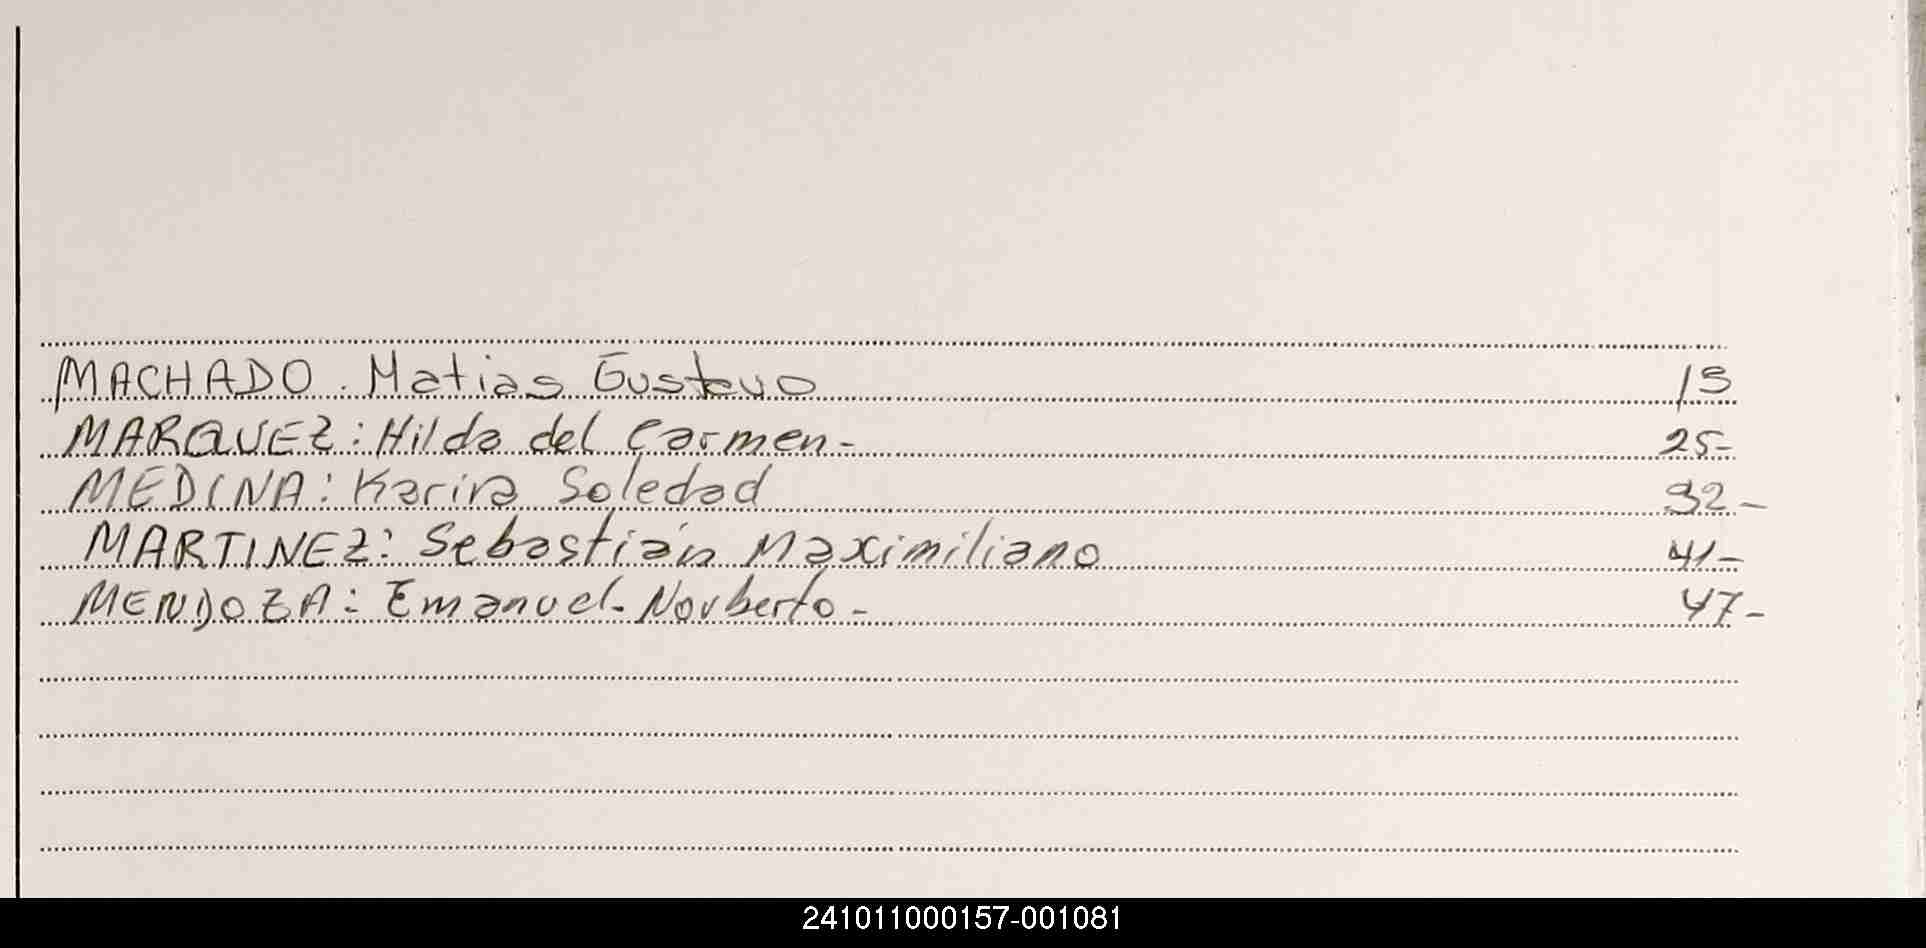 MACHADO. Matias Gustavo 15
MARQUEZ: Hilda del Carmen- 25-
MEDINA: Karina Soledad 32-
MARTINEZ: Sebastián Maximiliano 41-
MENDOZA: Emanuel. Norberto- 47-
241011000157-001081